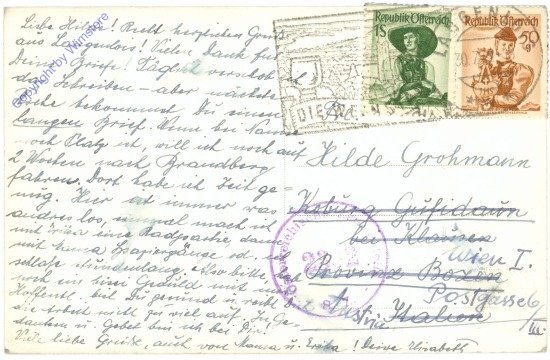 Liebe Hilde! Recht herzlichen Gruß
aus Langenlois! Vielen Dank für
Deine Briefe! Täglich verschob
das Schreiben – aber nächste
Woche bekommst Du einen
langen Brief. Wenn bei Nanne
noch Platz ist, will ich noch auf
2 Wochen nach Brandberg
fahren. Dort habe ich Zeit ge-
nug. Hier ist immer was
andres los, einmal mach ich
mit Erika eine Radpartie, dann
mit Spaziergänge od. ich
schlafe stundenlang. Also bitte
noch ein bissl Geduld mit mir
Hoffentl. bist Du gesund u. reibt
die Arbeit nicht zu viel auf. In Ge-
danken u. Gebet bin ich bei Dir!
Viele liebe Grüße, auch von Mama u. Erika! Deine Elisabeth
Copyright by Wimstore
REPUBLIK ÖSTERREICH
1S
REPUBLIK ÖSTERREICH
50 g
Hilde Grohmann
Koburg Gufidaun
bei Klausen
Wien I.
Provinz Bozen
Postgasse 6
Italien
Austria
III.